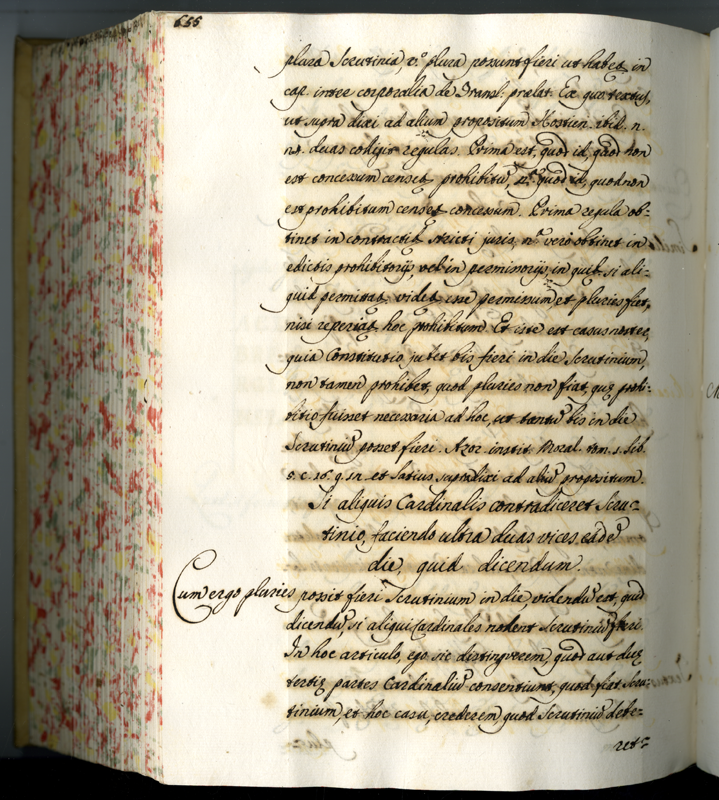 655
plura Scrutinia, v.º plura possunt fieri ut habet, in
cap. inter corporalia de Transl. prælat. Ex quo textus,
ut supra dixi ad alium propositum Hostien. ibid. n.
duas colligit regulas. Prima est, quod id, quod non
est concessum censet prohibitũ, quod id, quod non
est prohibitum censet concessum. Prima regula ob=
tinet in contractib. stricti juris, vero obtinet in
edictis prohibitorijs, vel in permissorijs, in quib. si ali=
quid permittat, videt esse permissum et pluries fiet,
nisi reperiat hoc prohibitum. Et iste est casus noster,
quia Constitutio jubet bis fieri in die Scrutinium,
non tamen prohibet, quod pluries non fiat, quæ prohi=
bitio fuisset necessaria ad hoc, ut tantũ bis in die
Scrutiniũ posset fieri. Azor. instit. Moral. tom. 1. lib.
5. c. 16. q. 12. et latius supra dixi ad aliũ propositum.
Si aliquis Cardinalis contradiceret Scru=
tinio, faciendo ultra duas vices, eadẽ
die, quid dicendum.
Cum ergo pluries possit fieri Scrutinium in die, videndũ est, quid
dicendũ, si aliqui Cardinales nolent Scrutiniũ fieri.
In hoc articulo, ego sic distinguerem, quod aut duæ
tertiæ partes Cardinaliũ consentiunt, quod fiat Scru=
tinium, et hoc casu, crederem, quod Scrutiniũ debe=
ret=